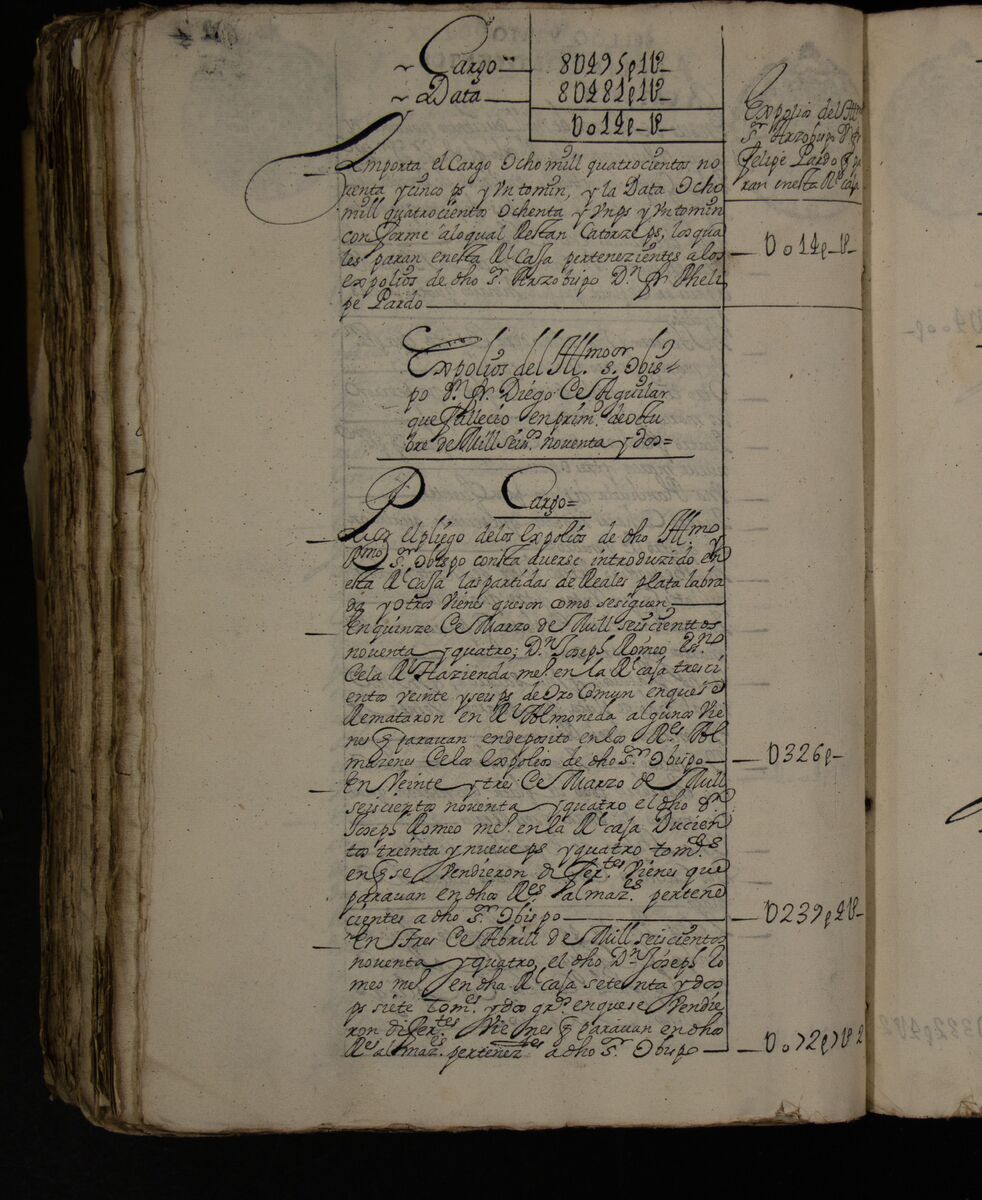 Cargo — 8U495p1U—
Data — 8U481p1U—
Uo14p—U—
Expolio del Ill
Sr Arzobispo Dn fr
Felipe Pardo q̃ pa
ran enesta Rl caja
Ymporta el Cargo Ocho mill quatrocientos no
venta y cinco ps y Un tomin, y la Data Ocho
mill quatrocientos Ochenta y Un ps y Un tomin
conforme alo qual Restan Catorze ps, los qua
les paran enesta Rl Caja pertenezientes a los
expolios de dho Sr Arzobispo Dn fr Pheli
pe Pardo — Uo14p—U—
Expolios del Illmo Sor Obis-
po Dn fr Diego Ce Aguilar
que fallecio en prim.o de Octu
bre de Mill seis.os noventa y dos=
Cargo=
Por el pliego delos Expolios de dho Illmo y
Rmo Sr Obispo consta averse introduzido en
esta Rl Caja las partidas de Reales plata labra
da y otros vienes que son como se siguen
En quinze Ce Marzo de Mill seiscienttos
noventa y quatro; Dn Joseph Romeo Essno
Cela Rl Hazienda me.o en la Rl caja tresci
entos veinte y seis ps de Oro Comun en que se
Remataron en Rl Almoneda algunos vie
nes q̃ paravan en deposito en los Rles Al
mazenes Celos expolios de dho Sr Obispo — U326p—
En Veinte y tres Ce Marzo de Mill
seiscientos noventa y quatro el dho Dn
Joseph Romeo me.o en la Rl caja Ducien
tos treinta y nueve ps y quatro tom.es
en q̃ se vendieron diferttes vienes que
paravan en dhos Rles almaz.es pertene
cientes a dho Sr Obispo — U239p4U—
En tres Ce Abrill de Mill seiscientos
noventa y quatro, el dho Dn Joseph Ro
meo me.o en dha Rl caja setenta y dos
ps siete tom.es y dos gr.s en que se vendie
ron diferttes vienes q̃ paravan en dhos
Rles almaz.es pertenez.tes a dho Sr Obispo — Uo72p7U2